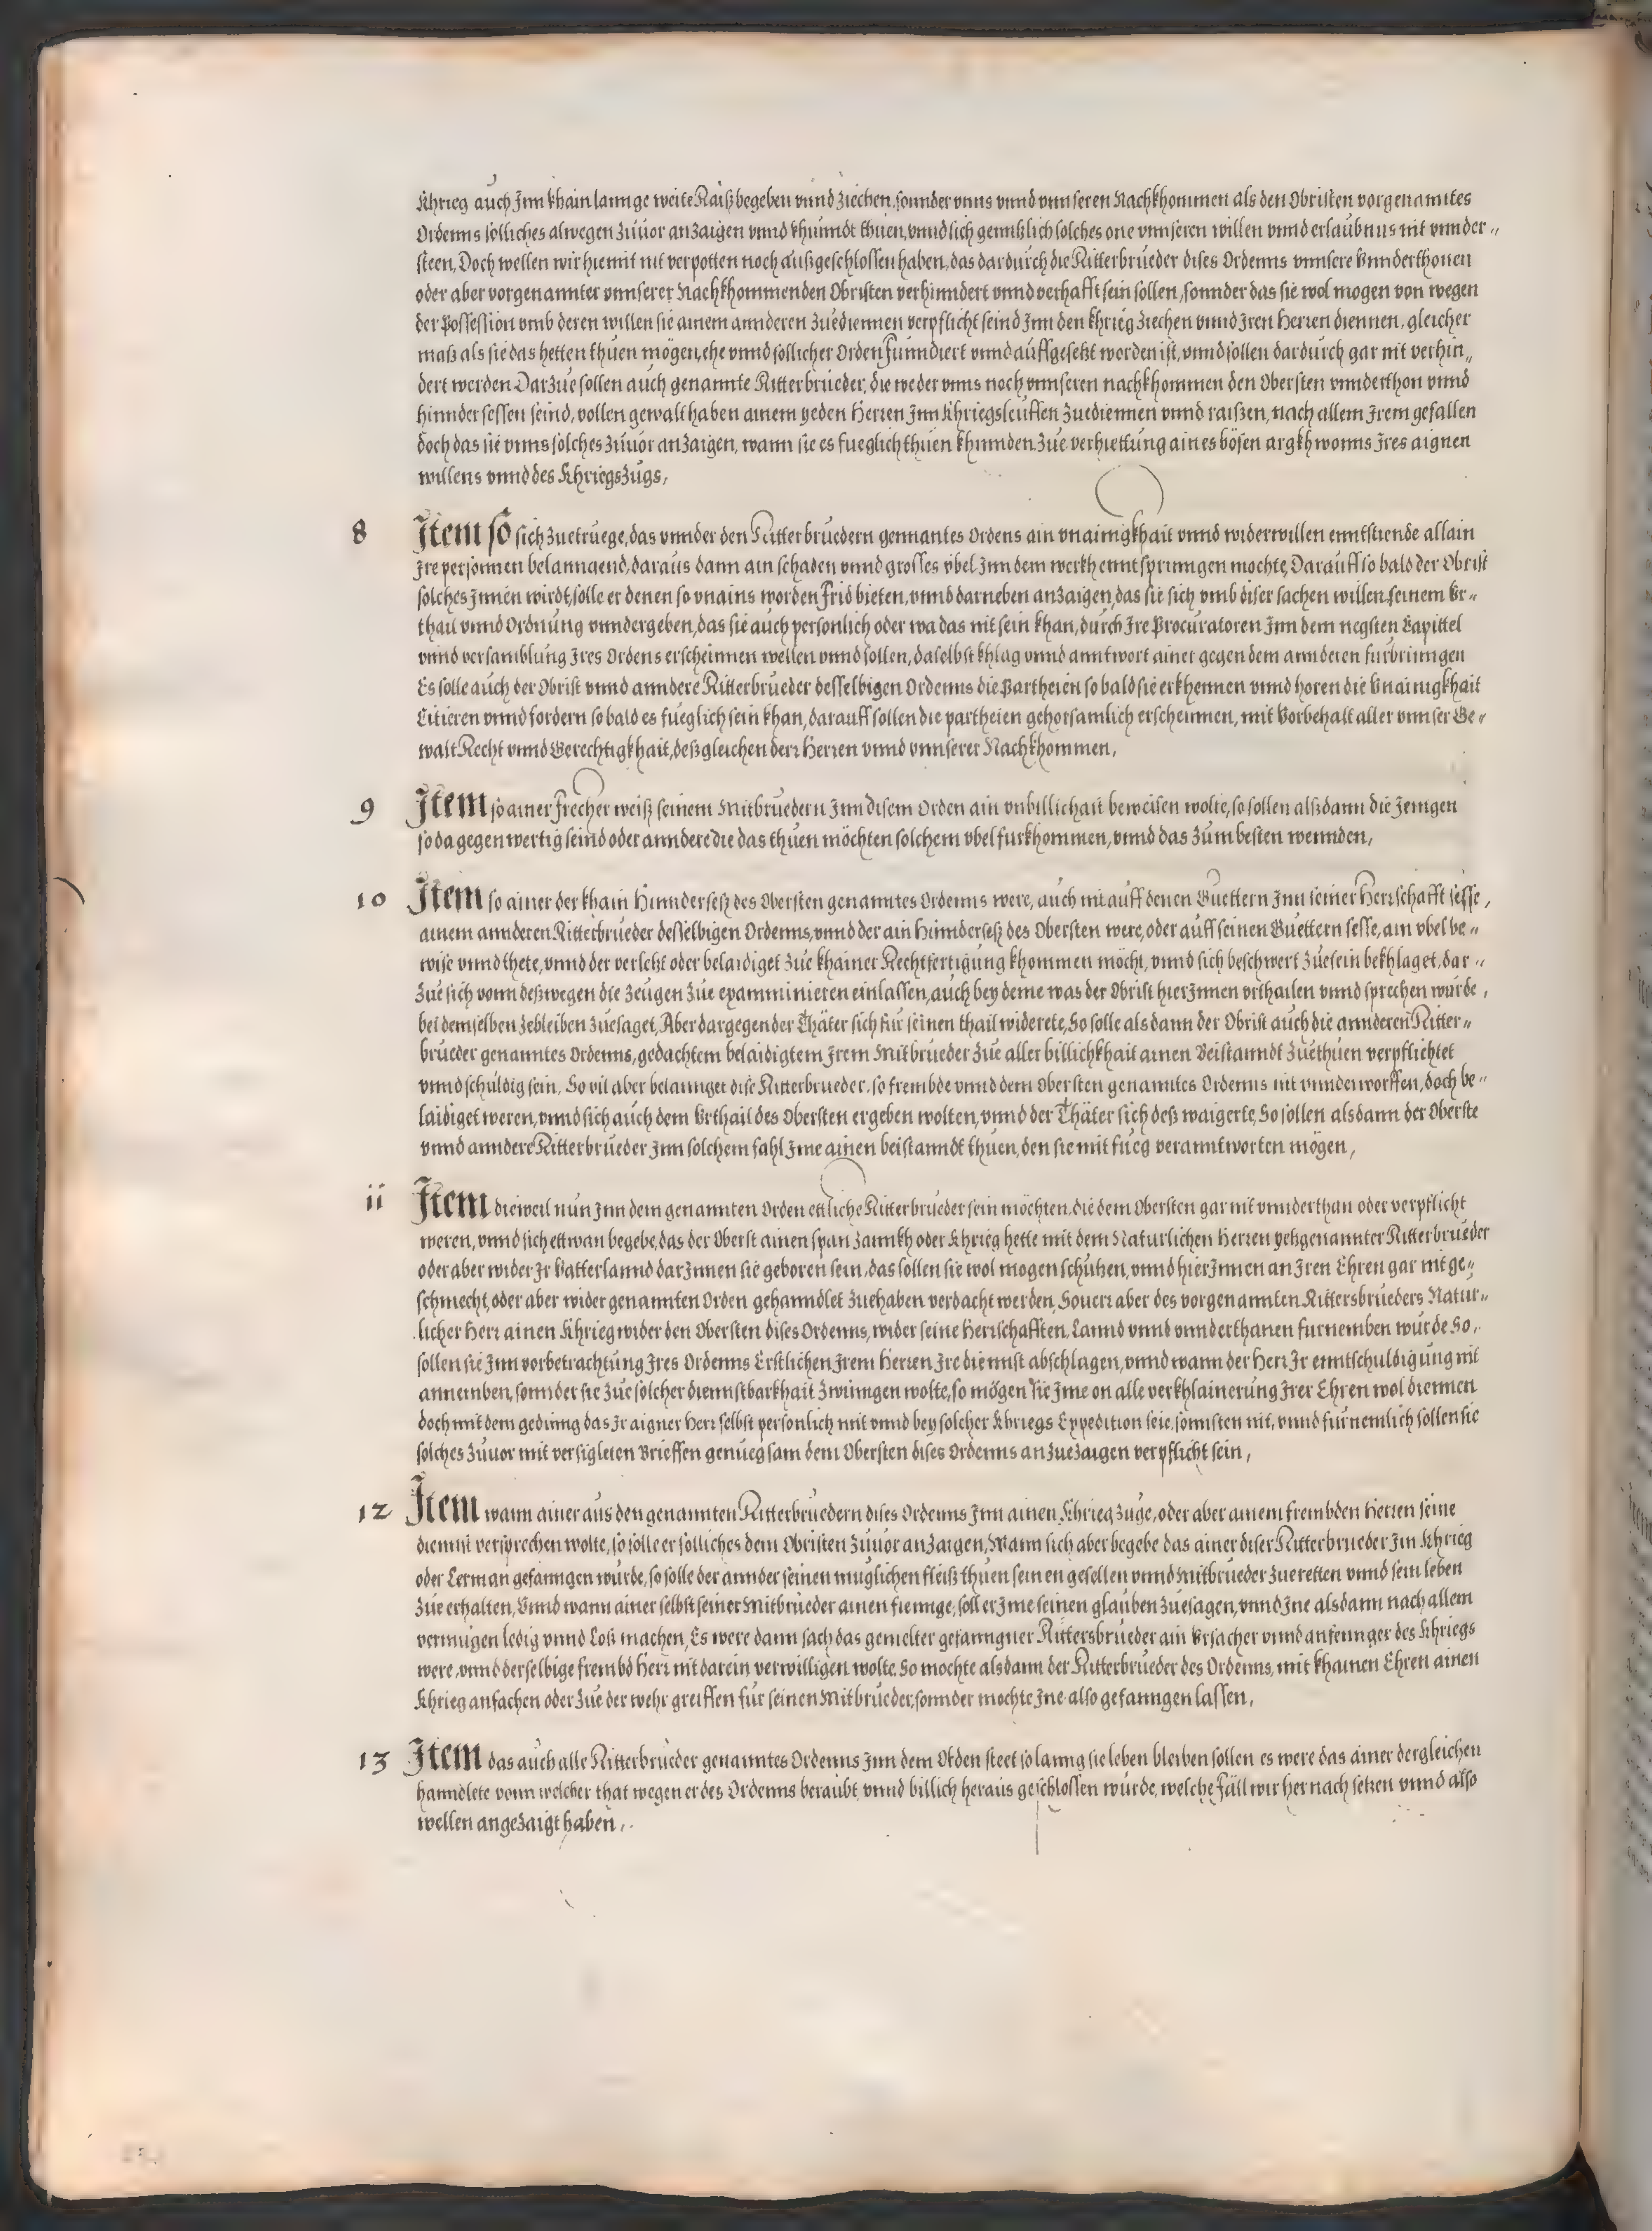 Khrieg auch Inn khain lannge weite Raiß begeben vnnd ziechen, sonnder vnns vnnd vnnseren Nachkhommen als den Obristen vorgenanntes
Ordenns solliches alwegen zuuor anzaigen vnnd khunndt thuen, vnnd sich genntzlich solches one vnnseren willen vnnd erlaubnus nit vnnder„
steen, Doch wellen wir hiemit nit verpotten noch außgeschlossen haben, das dardurch die Ritterbrueder dises Ordenns vnnsere Vnnderthonen
oder aber vorgenannter vnnserer Nachkhommenden Obristen verhinndert vnnd verhafft sein sollen, sonnder das sie wol mogen von wegen
der Possession vmb deren willen sie ainem annderen zuediennen verpflicht seind Inn den khrieg ziechen vnnd Iren Herren diennen, gleicher
maß als sie das hetten thuen mögen, ehe vnnd sollicher Orden funndiert vnnd auffgesetzt worden ist, vnnd sollen dardurch gar nit verhin„
dert werden Darzue sollen auch genannte Ritterbrueder, die weder vnns noch vnnseren nachkhommen den Obersten vnnderthon vnnd
hinndersessen seind, vollen gewalt haben ainem yeden Herren Inn Khriegsleuffen zuediennen vnnd raißen, nach allem Irem gefallen
doch das sie vnns solches zuuor anzaigen, wann sie es fueglich thuen khinnden zue verhiettung aines bösen argkhwonns Ires aignen
willens vnnd des Khriegszugs,
8 Item so sich zuetruege, das vnnder den Ritterbruedern genantes Ordens ain vnainigkhait vnnd widerwillen enntstiende allain
Ire personnen belanngend, daraus dann ain schaden vnnd grosses vbel Inn dem werkh enntsprunngen mochte, Darauff so bald der Obrist
solches Innen wirdt, solle er denen so vnains worden Frid bieten, vnnd darneben anzaigen, das sie sich vmb diser sachen willen seinem Vr„
thail vnnd Ordnung vnndergeben, das sie auch personlich oder wa das nit sein khan, durch Ire Procuratoren Inn dem negsten Capittel
vnnd versamblung Ires Ordens erscheinnen wellen vnnd sollen, daselbst khlag vnnd anntwort ainer gegen dem annderen furbrinngen
Es solle auch der Obrist vnnd anndere Ritterbrueder desselbigen Ordenns die Partheien so bald sie erkhennen vnnd horen die Vnainigkhait
Citieren vnnd fordern so bald es fueglich sein khan, darauff sollen die partheien gehorsamlich erscheinnen, mit Vorbehalt aller vnnser Ge„
walt Recht vnnd Gerechtigkhait, deßgleichen derr Herren vnnd vnnserer Nachkhommen,
9 Item so ainer frecher weiß seinem Mitbruedern Inn disem Orden ain vnbillichait beweisen wolte, so sollen alßdann die Jenigen
so da gegenwertig seind oder anndere die das thuen möchten solchem vbel furkhommen, vnnd das zum besten wennden,
10 Item so ainer der khain Hinndersesß des Obersten genanntes Ordenns were, auch nit auff denen Guettern Inn seiner Herrschafft sesse,
ainem annderen Ritterbrueder desselbigen Ordenns, vnnd der ain Hinndersesß des Obersten were, oder auff seinen Guettern sesse, ain vbel be„
wise vnnd thete, vnnd der verletzt oder belaidiget zue khainer Rechtfertigung khommen möcht, vnnd sich beschwert zuesein bekhlaget, dar„
zue sich vonn deßwegen die zeugen zue examminieren einlassen, auch bey deme was der Obrist hierInnen vrthailen vnnd sprechen wurde,
bei demselben zebleiben zuesaget, Aber dargegen der Thäter sich fur seinen thail widerete, So solle alsdann der Obrist auch die annderen Ritter„
brueder genanntes Ordenns, gedachtem belaidigtem Irem Mitbrueder zue aller billichkhait ainen Beistanndt zuethuen verpflichtet
vnnd schuldig sein, So vil aber belannget dise Ritterbrueder, so frembde vnnd dem Obersten genanntes Ordenns nit vnnderworffen, doch be„
laidiget weren, vnnd sich auch dem Vrthail des Obersten ergeben wolten, vnnd der Thäter sich deß waigerte, So sollen alsdann der Oberste
vnnd anndere Ritterbrueder Inn solchem fahl Ime ainen beistanndt thuen, den sie mit fueg veranntworten mögen,
ii Item dieweil nun Inn dem genannten Orden ettliche Ritterbrueder sein möchten, die dem Obersten gar nit vnnderthan oder verpflicht
weren, vnnd sich ettwan begebe, das der Oberst ainen span zannkh oder Khrieg hette mit dem Naturlichen Herren yetzgenannter Ritterbrueder
oder aber wider Ir Vatterlannd darInnen sie geboren sein, das sollen sie wol mogen schutzen, vnnd hierInnen an Iren Ehren gar nit ge„
schmecht, oder aber wider genannten Orden gehanndlet zuehaben verdacht werden, Souerr aber des vorgenannten Rittersbrueders Natur„
licher Herr ainen Khrieg wider den Obersten dises Ordenns, wider seine Herrschafften, Lannd vnnd vnnderthanen furnemben wurde So,
sollen sie Inn vorbetrachtung Ires Ordenns Erstlichen Irem Herren Ire diennst abschlagen, vnnd wann der Herr Ir enntschuldigung nit
annemben, sonnder sie zue solcher diennstbarkhait zwinngen wolte, so mögen sie Ime on alle verkhlainerung Irer Ehren wol diennen
doch mit dem gedinng das Ir aigner Herr selbst personlich mit vnnd bey solcher Khriegs Expedition seie, sonnsten nit, vnnd furnemlich sollen sie
solches zuuor mit versigleten Brieffen genuegsam dem Obersten dises Ordenns anzuezaigen verpflicht sein,
12 Item wann ainer aus den genannten Ritterbruedern dises Ordenns Inn ainen Khrieg zuge, oder aber ainem frembden Herren seine
diennst versprechen wolte, so solle er solliches dem Obristen zuuor anzaigen, Wann sich aber begebe das ainer diser Ritterbrueder Im Khrieg
oder Lerman gefanngen wurde, so solle der annder seinen muglichen fleiß thuen seinen gesellen vnnd Mitbrueder zueretten vnnd sein leben
zue erhalten, Vnnd wann ainer selbst seiner Mitbrueder ainen fiennge, soll er Ime seinen glauben zuesagen, vnnd Ine alsdann nach allem
vermugen ledig vnnd Loß machen, Es were dann sach das gemelter gefanngner Rittersbrueder ain Vrsacher vnnd anfennger des Khriegs
were, vnnd derselbige frembd Herr nit darein verwilligen wolte, So mochte alsdann der Ritterbrueder des Ordenns, mit khainen Ehren ainen
Khrieg anfachen oder zue der wehr greiffen fur seinen Mitbrueder, sonnder mochte Ine also gefanngen lassen,
13 Item das auch alle Ritterbrueder genanntes Ordenns Inn dem Orden steet so lanng sie leben bleiben sollen es were das ainer dergleichen
hanndlete vonn welcher that wegen er des Ordenns beraubt, vnnd billich heraus geschlossen wurde, welche Fäll wir hernach setzen vnnd also
wellen angezaigt haben,